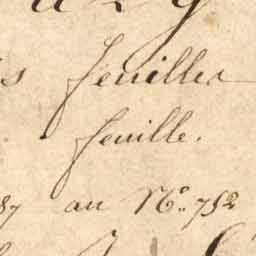 s feuilles
feuille.
87 au No. 752